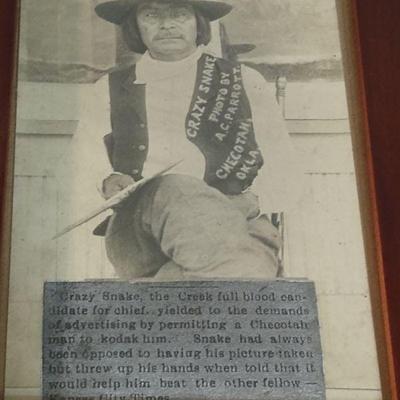 CRAZY SNAKE
PHOTO BY
A.C. PARROTT.
CHECOTAH,
OKLA.
Crazy Snake, the Creek full blood can-
didate for chief, yielded to the demands
of advertising by permitting a Checotah
man to kodak him. Snake had always
been opposed to having his picture taken
but threw up his hands when told that it
would help him beat the other fellow—
Kansas City Times